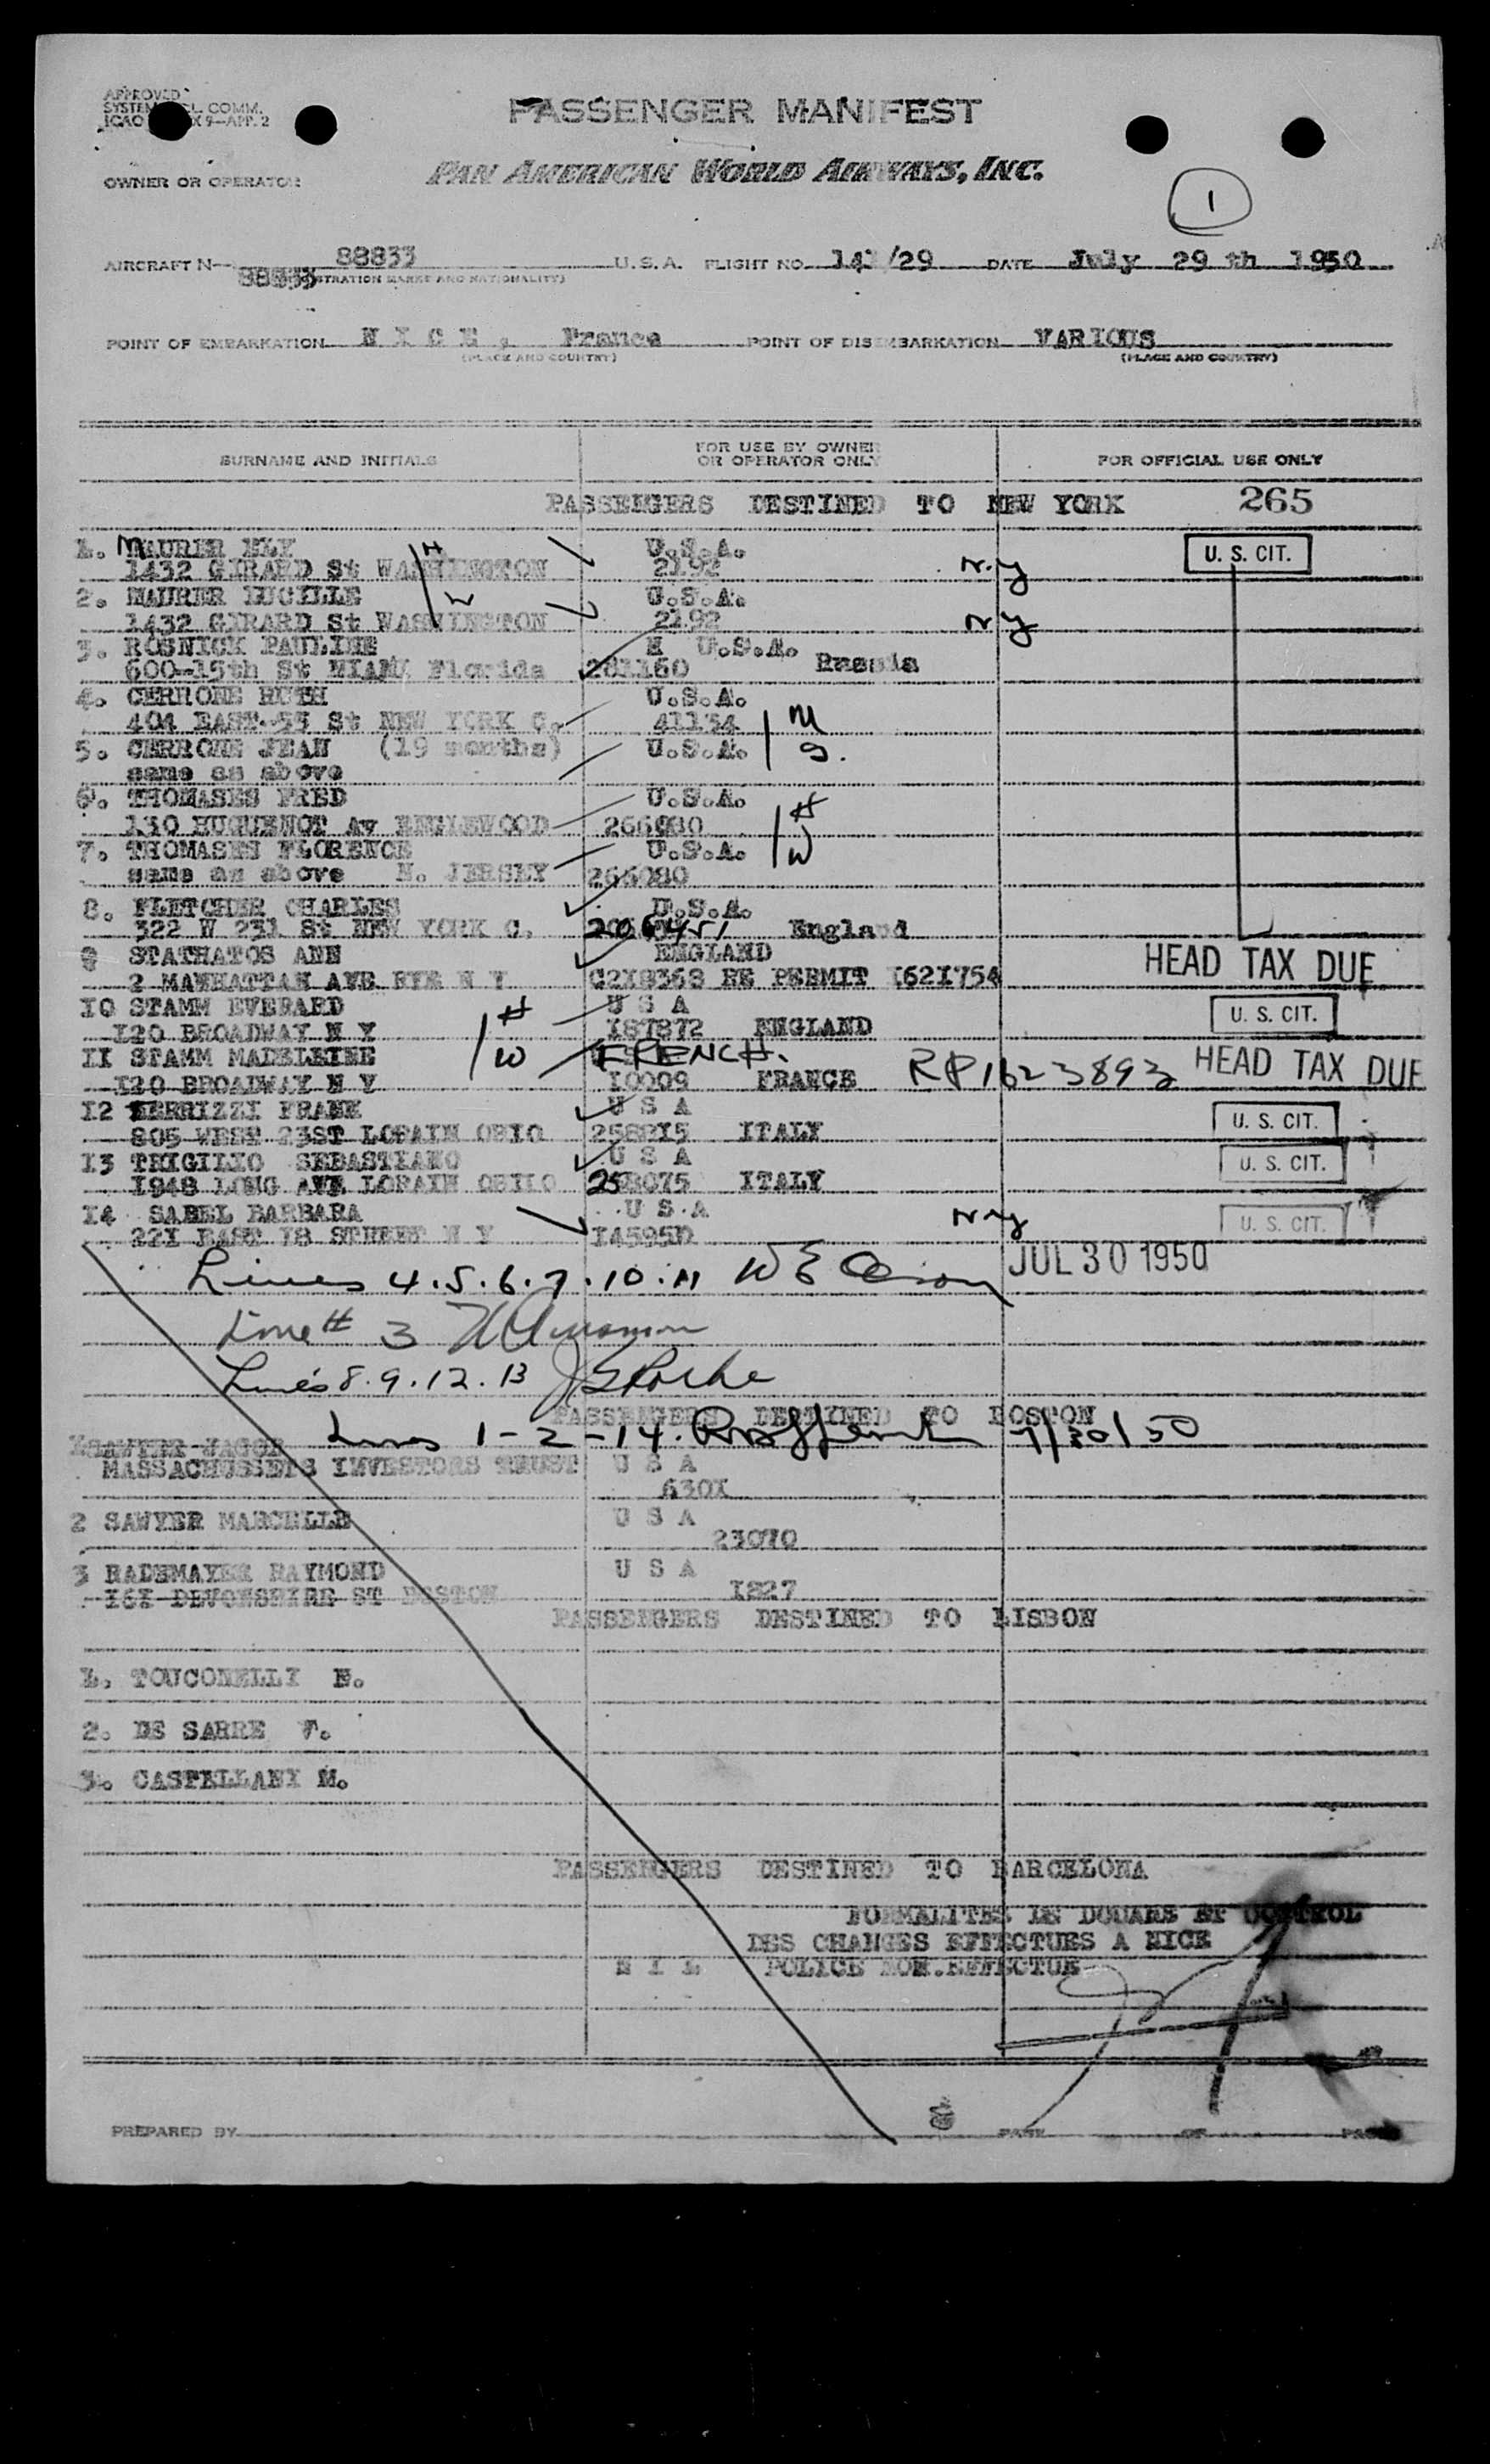 APPROVED
SYSTEM CL. COMM.
ICAO X 9—APP. 2
PASSENGER MANIFEST
OWNER OR OPERATOR PAN AMERICAN WORLD AIRWAYS, INC.
1
AIRCRAFT N— 88833 U.S.A. FLIGHT NO. 14 /29 DATE July 29 th 1950
88833 STRATION MARKS AND NATIONALITY)
POINT OF EMBARKATION N I C E , France POINT OF DISEMBARKATION VARIOUS
(PLACE AND COUNTRY) (PLACE AND COUNTRY)
SURNAME AND INITIALS FOR USE BY OWNER OR OPERATOR ONLY FOR OFFICIAL USE ONLY
PASSENGERS DESTINED TO NEW YORK 265
1. MAURER ELY H U.S.A. U. S. CIT.
1432 GIRARD St WASHINGTON 2192 N.Y
2. MAURER LUCILLE W U.S.A.
1432 GIRARD St WASHINGTON 2192 N Y
3. ROSNICK PAULINE U.S.A.
600-15th St MIAMI Florida 281160 Russia
4. CERRONE RUTH U.S.A.
404 EAST 55 St NEW YORK C. 41134 M
5. CERRONE JEAN (19 months) U.S.A. S.
same as above
6. THOMASES FRED U.S.A. H
130 HUGUENOT Av ENGLEWOOD
7. THOMASES FLORENCE U.S.A. W
same as above N. JERSEY
8. FLETCHER CHARLES U.S.A.
322 W 231 St NEW YORK C. 206451 England
9 STATHATOS ANN ENGLAND HEAD TAX DUE
2 MANHATTAN AVE RYE N Y C218368 RE PERMIT I621754
10 STAMM EVERARD H U S A U. S. CIT.
120 BROADWAY N Y 187872 ENGLAND
11 STAMM MADELEINE W FRENCH. HEAD TAX DUE
120 BROADWAY N Y 10009 FRANCE RP1623893
12 FRANK U S A U. S. CIT.
805 WEST 23ST LORAIN OHIO 258215 ITALY
13 TRIGILIO SEBASTIANO U S A U. S. CIT.
1948 LONG AVE LORAIN OHIO 258075 ITALY
14 SABEL BARBARA U S A N Y U. S. CIT.
221 EAST 18 STREET N Y
JUL 30 1950
Lines 4.5.6.7.10.11
Line # 3
Lines 8.9.12.13
PASSENGERS DESTINED TO BOSTON
Lines 1-2-14. 7/30/50
SAWYER JACOB
MASSACHUSSETS INVESTORS TRUST U S A
6301
2 SAWYER MARCELLE U S A
23070
3 RADEMAYER RAYMOND U S A
161 DEVONSHIRE ST BOSTON 1827
PASSENGERS DESTINED TO LISBON
1. TOUCONELLI E.
2. DE SARRE F.
3. CASTELLANI M.
PASSENGERS DESTINED TO BARCELONA
FORMALITES DE DOUANE ET CONTROL
DES CHANGES EFFECTUES A NICE
N I L POLICE NON.EFFECTUE
PREPARED BY PAGE OF PAGES